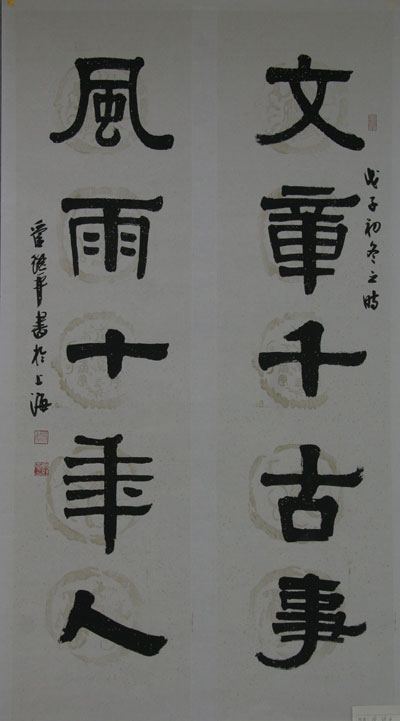 文章千古事
戊子初冬之時
風雨十年人
書於上海